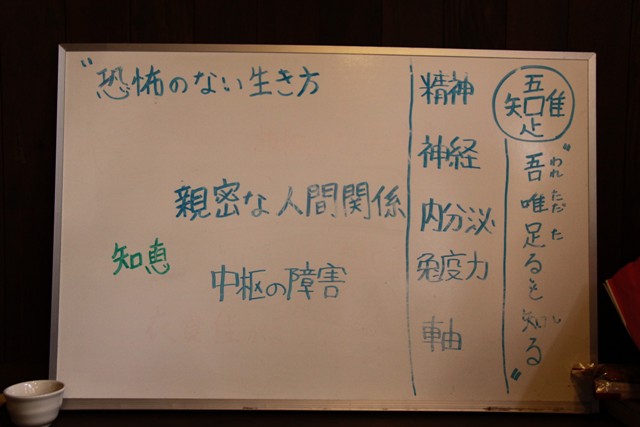 "恐怖のない生き方
親密な人間関係
知恵
中枢の障害
精神
神経
内分泌
免疫力
軸
吾唯足知
"吾唯足るを知る"
われ ただ た し